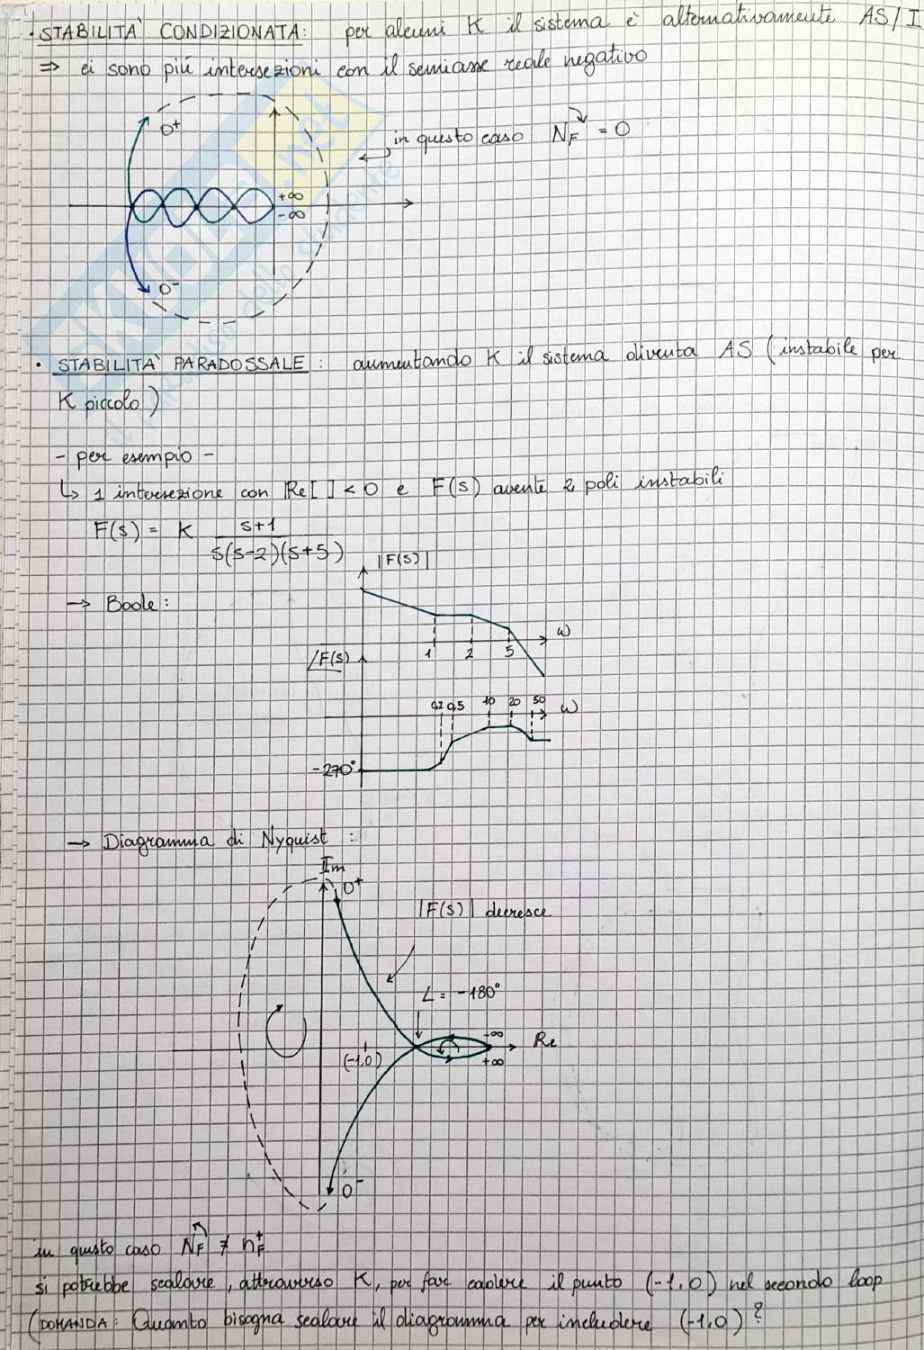 · STABILITA' CONDIZIONATA: per alcuni K il sistema è alternativamente AS/I
⇒ ci sono più intersezioni con il semiasse reale negativo
0⁺
in questo caso N_F = 0
+∞
-∞
0⁻
· STABILITA' PARADOSSALE: aumentando K il sistema diventa AS (instabile per
K piccolo)
- per esempio -
↳ 1 intersezione con Re[ ] < 0 e F(s) avente 2 poli instabili
F(s) = K (s+1) / (s(s-2)(s+5))
|F(s)|
→ Bode:
ω
1 2 5
/F(s)
0,2 0,5 10 20 50 ω
-270°
→ Diagramma di Nyquist:
Im
0⁺
|F(s)| decresce
∠ = -180°
-∞
Re
(-1,0)
+∞
0⁻
in questo caso N_F ≠ n_F⁺
si potrebbe scalare, attraverso K, per far cadere il punto (-1,0) nel secondo loop
(DOMANDA: Quanto bisogna scalare il diagramma per includere (-1,0)?